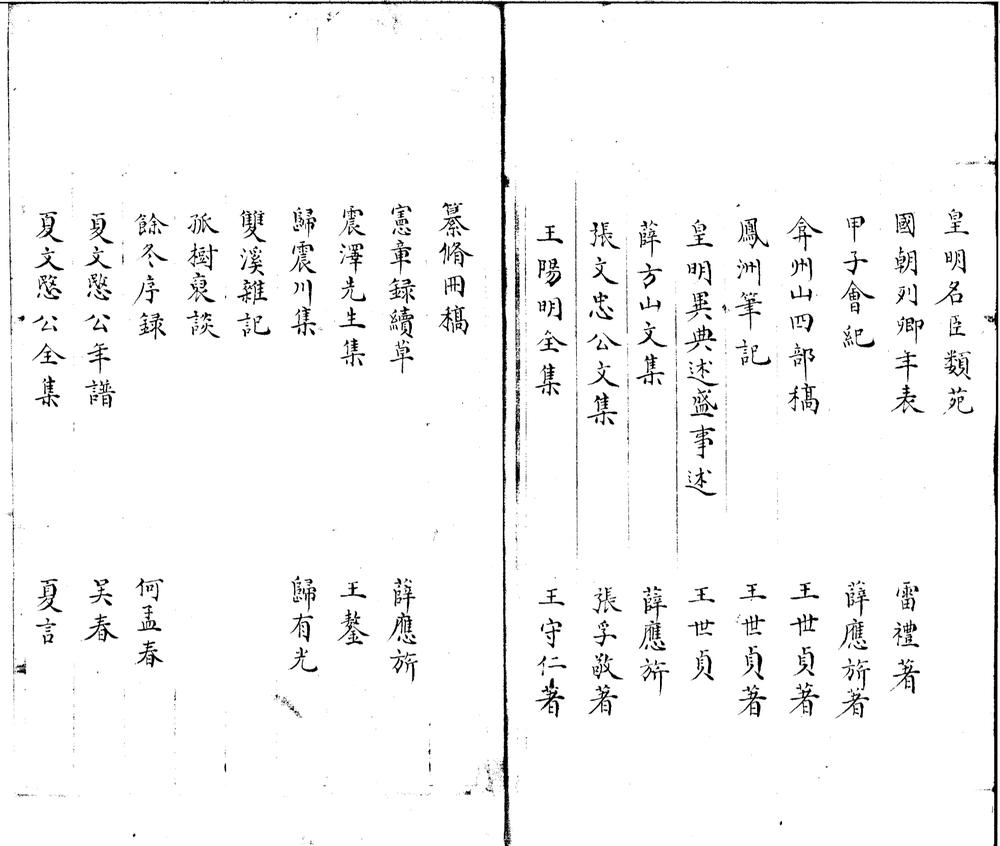 皇明名臣類苑
國朝列卿年表 雷禮著
甲子會紀 薛應旂著
弇州山四部稿 王世貞著
鳳洲筆記 王世貞著
皇明異典述盛事述 王世貞
薛方山文集 薛應旂
張文忠公文集 張孚敬著
王陽明全集 王守仁著
纂脩冊稿
憲章録續草 薛應旂
震澤先生集 王鏊
歸震川集 歸有光
雙溪雜記
孤樹裒談
餘冬序録 何孟春
夏文愍公年譜 吴春
夏文愍公全集 夏言